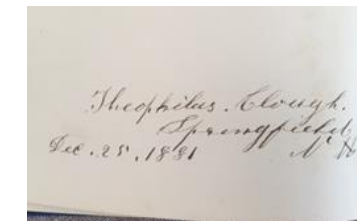 Theophilus. Clough.
Springfield,
Dec. 25, 1881 N H